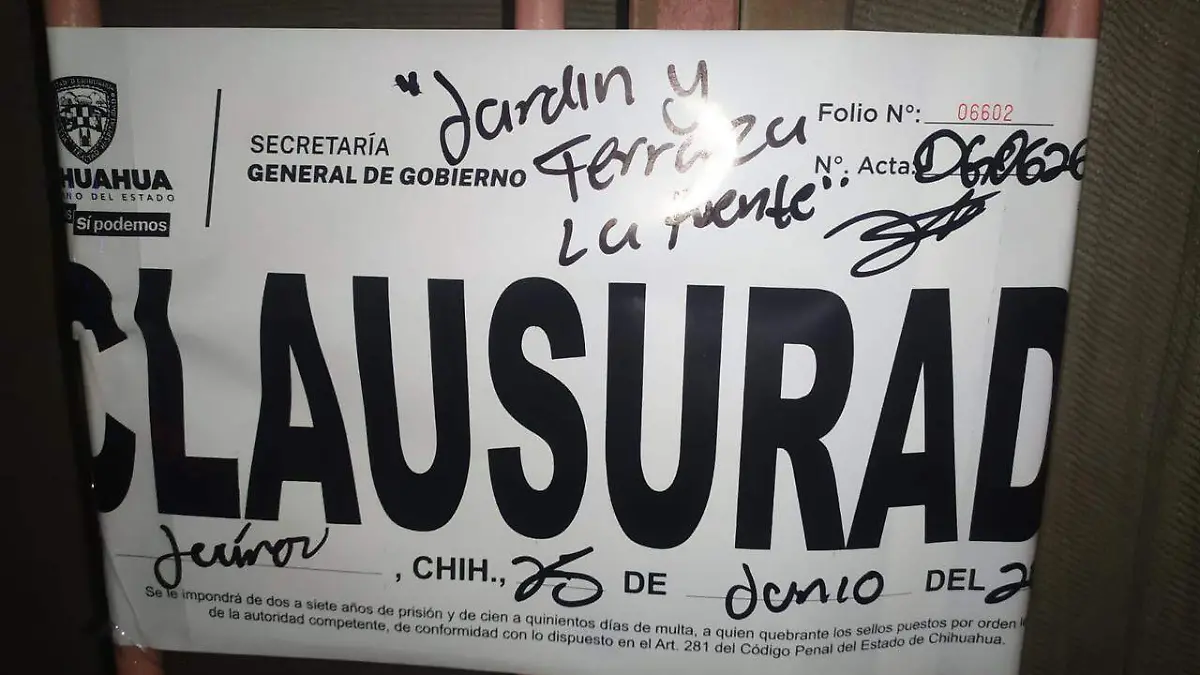 HUAHUA
NO DEL ESTADO
Sí podemos
SECRETARÍA
GENERAL DE GOBIERNO
"Jardin y
Terraza
La fuente"
Folio N°: 06602
N°. Acta:
CLAUSURAD
, CHIH., 25 DE Junio DEL 2
Se le impondrá de dos a siete años de prisión y de cien a quinientos días de multa, a quien quebrante los sellos puestos por orden
de la autoridad competente, de conformidad con lo dispuesto en el Art. 281 del Código Penal del Estado de Chihuahua.